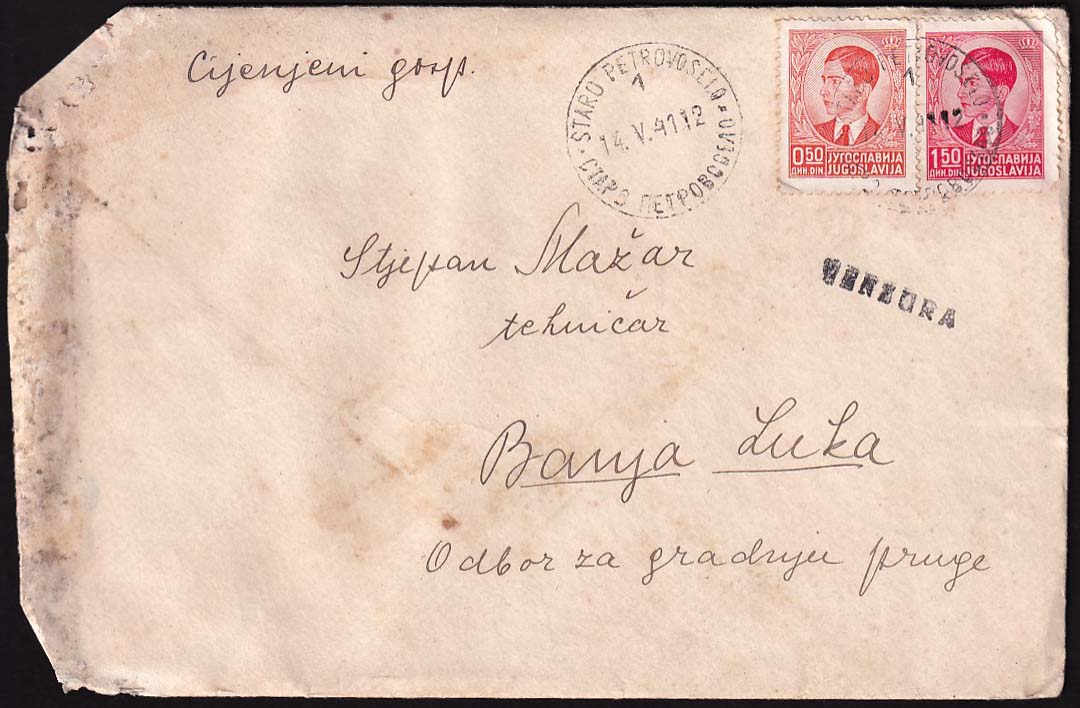 Cijenjeni gosp.
STARO PETROVOSELO
1
14. V. 41 12
СТАРО ПЕТРОВОСЕЛО
0.50 ЈУГОСЛАВИЈА
ДИН. DIN JUGOSLAVIJA
1.50 ЈУГОСЛАВИЈА
ДИН. DIN JUGOSLAVIJA
Stjepan Mažar
CENZURA
tehničar
Banja Luka
Odbor za gradnju pruge